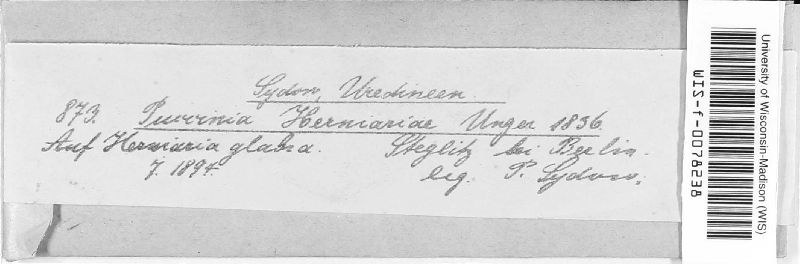 Sydow, Uredineen.
873. Puccinia Herniariae Unger 1836.
Auf Herniaria glabra. Steglitz bei Berlin.
7. 1894. leg. P. Sydow.
University of Wisconsin-Madison (WIS)
WIS-f-0078238